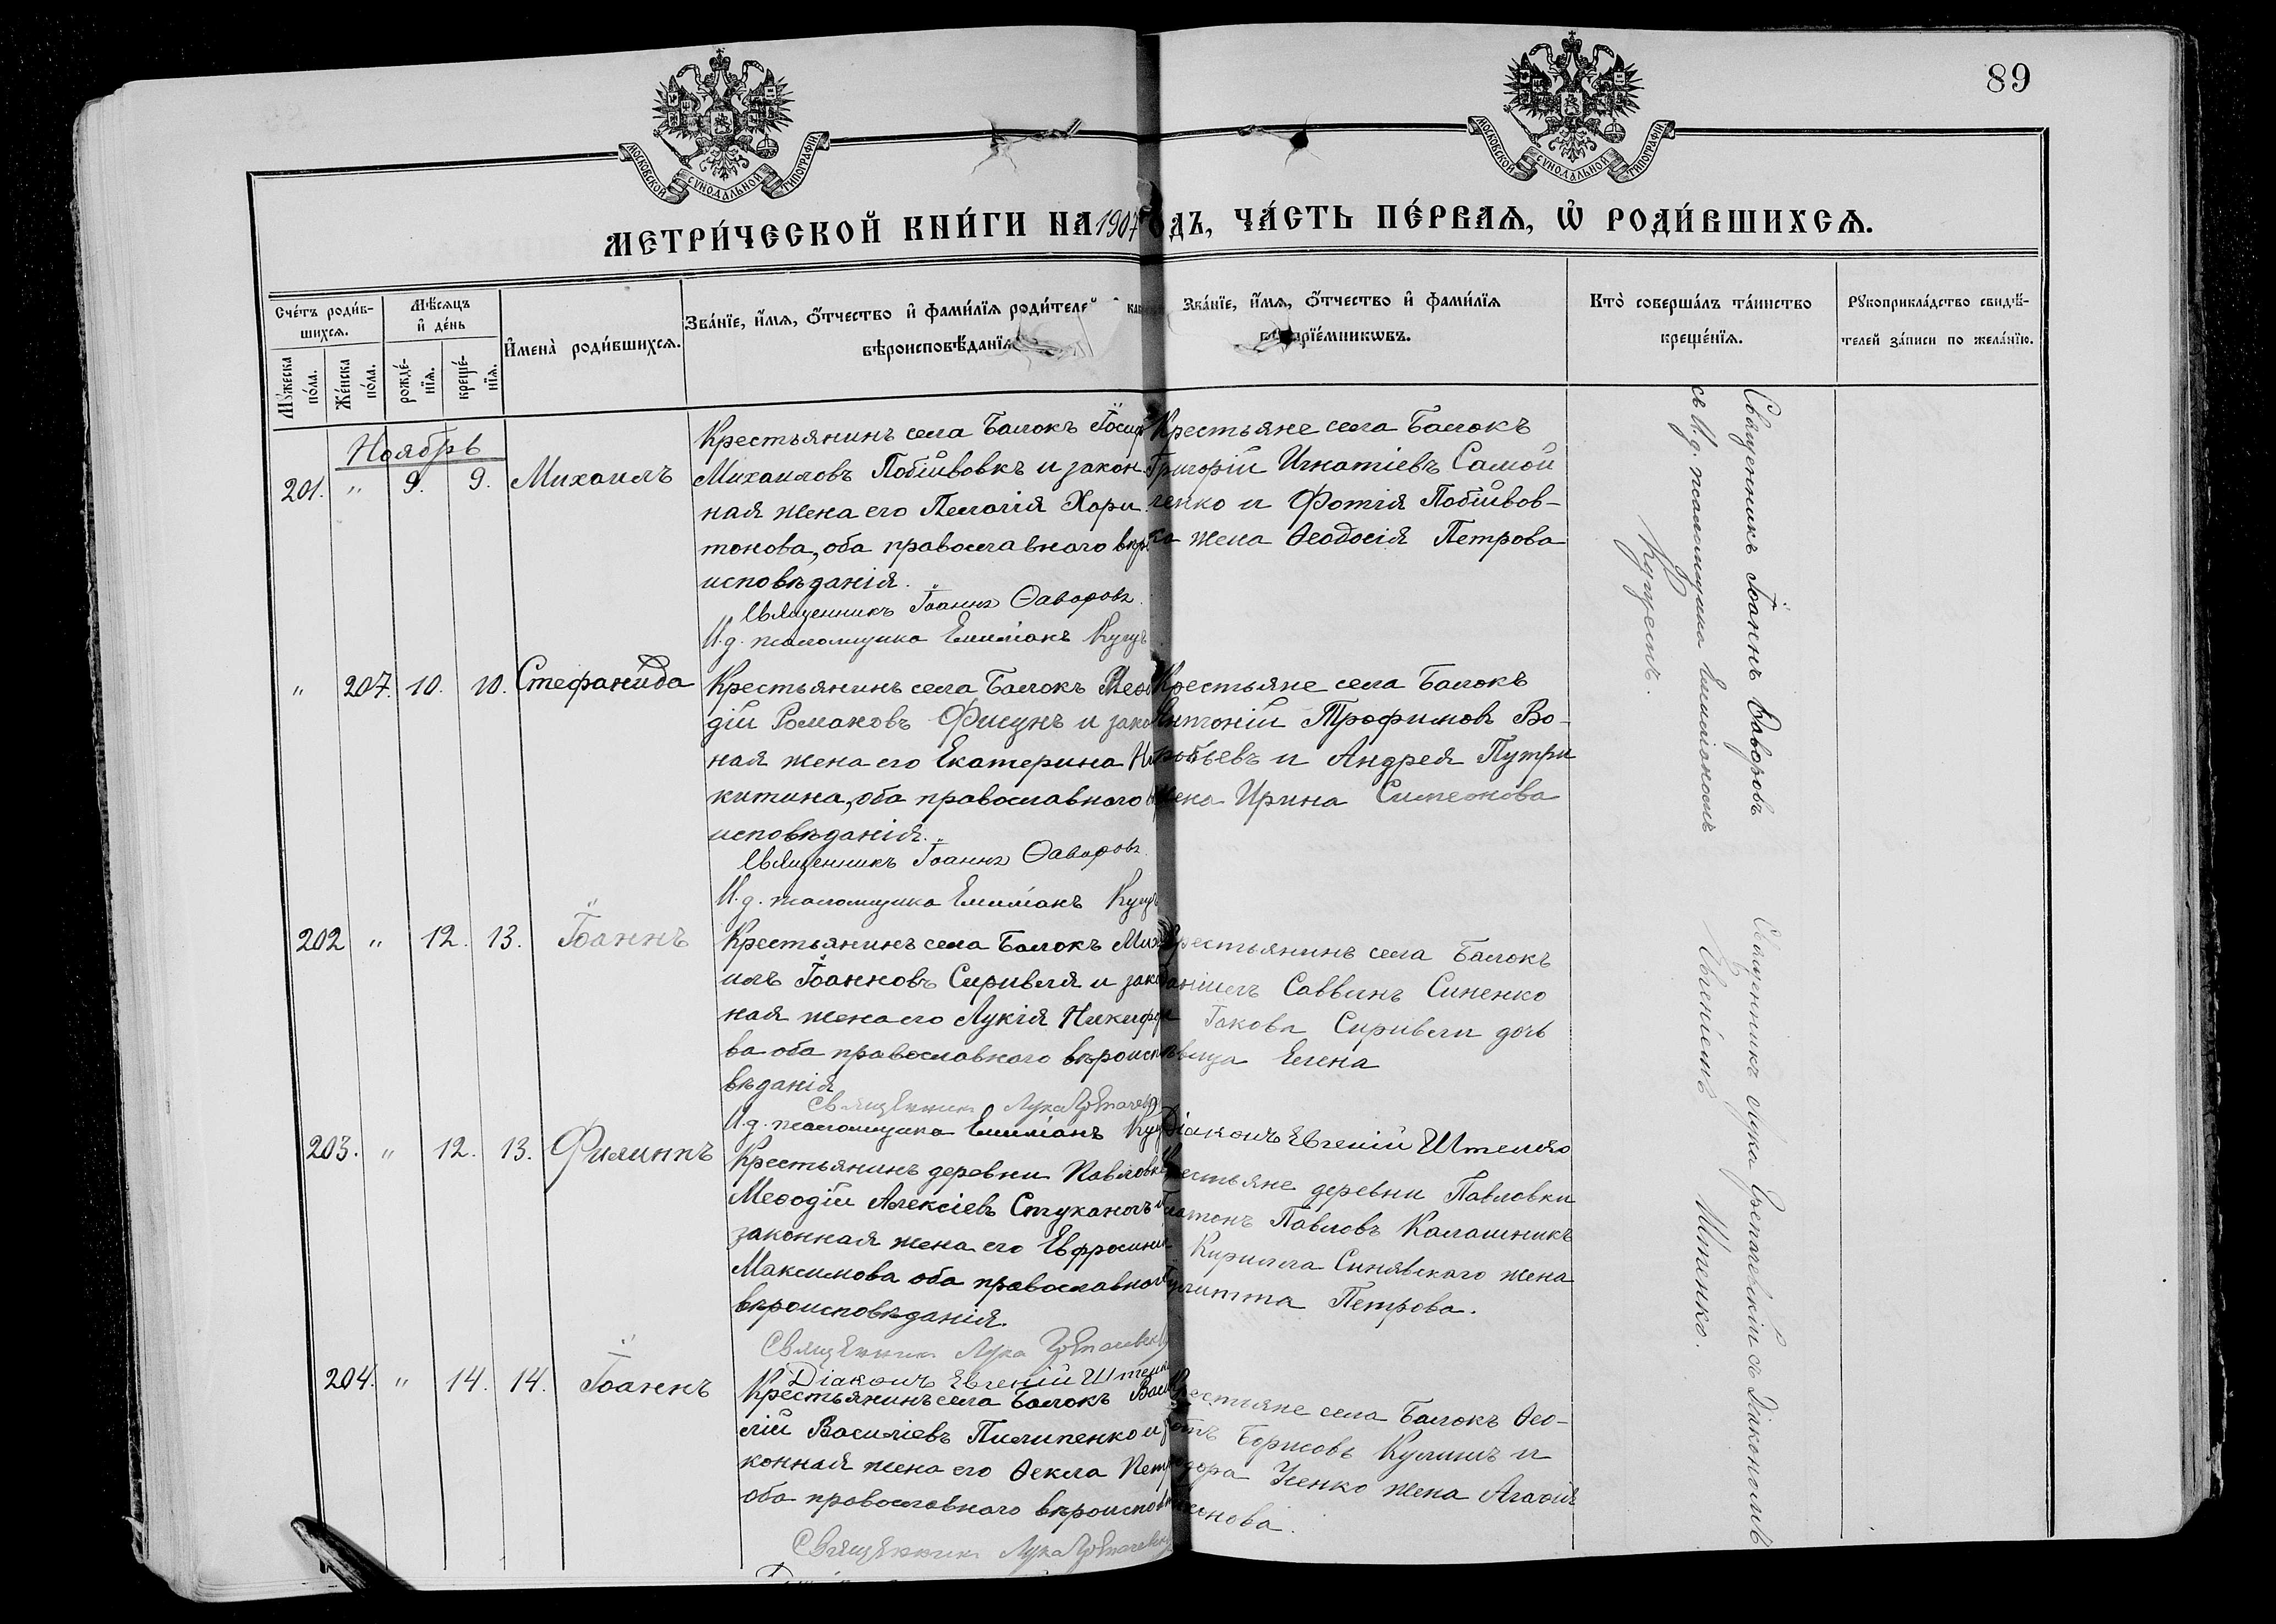 89
МОСКОВСКОЙ СѴНОДАЛЬНОЙ ТИПОГРАФІИ
МОСКОВСКОЙ СѴНОДАЛЬНОЙ ТИПОГРАФІИ
МЕТРИ́ЧЕСКОЙ КНИ́ГИ НА 1907 ОДЪ, ЧА́СТЬ ПЕ́РВАЯ, Ѡ РОДИ́ВШИХСЯ.
Сче́тъ роди́в-
шихся.
Мꙋжеска
по́ла.
Же́нска
по́ла.
Мѣ́сяцъ
и҆ де́нь
рожде́-
нїя.
креще́-
нїя.
И҆мена̀ роди́вшихся.
Зва́нїе, и҆́мя, ѻ҆́тчество и҆ фами́лїя роди́теле
вѣроисповѣ́данїя
Зва́нїе, и҆́мя, ѻ҆́тчество и҆ фами́лїя
прїе́мникѡвъ.
Кто̀ соверша́лъ та́инство
креще́нїя.
Рꙋкоприкла́дство свидѣ́-
телей за́писи по жела́нїю.
Ноябрь
201. " 9. 9. Михаилъ
Крестьянинъ села Балокъ Іосиф
Михаиловъ Побійвовкъ и закон
ная жена его Пелагія Хари
тонова, оба православнаго вѣр
исповѣданія.
Священникъ Іоаннъ Ѳаворовъ.
И.д. псаломщика Емиліанъ Куцъ
Крестьяне села Балокъ
Григорій Игнатіевъ Самой
ленко и Фотія Побійвов-
ка жена Ѳеодосія Петрова
Священникъ Іоаннъ Ѳаворовъ
съ И.д. псаломщика Емиліаномъ
" 207. 10. 10. Стефанида
Крестьянинъ села Балокъ
дій Романовъ Фисунъ и зако
ная жена его Екатерина Ни
китина, оба православнаго
исповѣданія.
Священникъ Іоаннъ Ѳаворовъ.
И.д. псаломщика Емиліанъ
Крестьяне села Балокъ
Антоній Трофимовъ Во-
робьевъ и Андрея Путри
жена Ирина Симеонова
202 " 12. 13. Іоаннъ
Крестьянинъ села Балокъ Миха
илъ Іоанновъ Сиривля и зако
ная жена его Лукія Никифоро
ва оба православнаго вѣроиспо
вѣданія
Священникъ Лука
И.д. псаломщика Емиліанъ
Крестьянинъ села Балокъ
Даніилъ Саввинъ Синенко
Іакова Сиривли дочь
вица Елена
Діаконъ Евгеній Штепко
Священникъ Лука съ Діакономъ
Евгеніемъ
203. " 12. 13. Филиппъ
Крестьянинъ деревни Павловки
Меѳодій Алексіевъ Стуканъ и
законная жена его Евфросинія
Максимова оба православнаго
вѣроисповѣданія.
Священникъ Лука
Діаконъ Евгеній
Крестьяне деревни Павловки
Платонъ Павловъ Калашникъ
Кирилла Синявскаго жена
Іулитта Петрова.
204. " 14. 14. Іоаннъ
Крестьянинъ села Балокъ Васи
лій Василіевъ Пилипенко и за
конная жена его Ѳекла Петр
оба православнаго вѣроиспов
Священникъ Лука
Крестьяне села Балокъ Ѳео-
Борисовъ Кулишъ и
Усенко жена Агаѳія